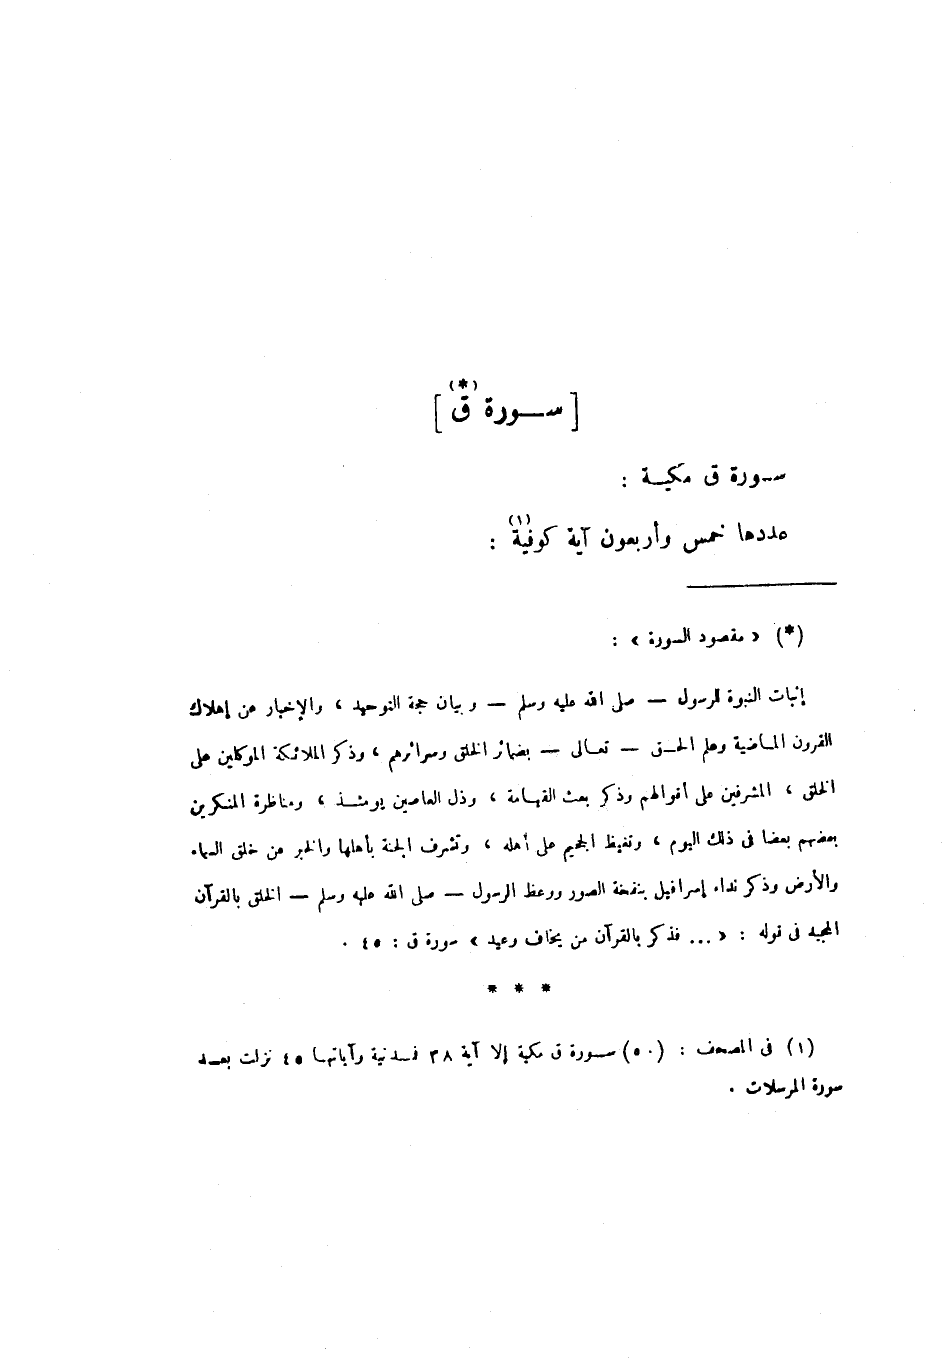 [ ســورة ق (*) ]
سـورة ق مكيـة :
عددها خمس وأربعون آية كوفية (١) :
(*) « مقصود السورة » :
إثبات النبوة للرسول — صلى الله عليه وسلم — وبيان حجة التوحيد ، والإخبار عن إهلاك
القرون المـاضية وعلم الحـق — تعـالى — بضمائر الخلق وسرائرهم ، وذكر الملائكة الموكلين على
الخلق ، المشرفين على أقوالهم وذكر بعث القيـامة ، وذل العاصين يومئـذ ، ومناظرة المنكرين
بعضهم بعضا فى ذلك اليوم ، وتغيظ الجحيم على أهله ، وتشرف الجنة بأهلها والخبر عن خلق السماء
والأرض وذكر نداء إسرافيل بنفخة الصور ووعظ الرسول — صلى الله عليه وسلم — الخلق بالقرآن
المجيد فى قوله : « ... فذكر بالقرآن من يخاف وعيد » سورة ق : ٤٥ .
* * *
(١) فى المصحف : (٥٠) سـورة ق مكية إلا آية ٣٨ فمـدنية وآياتهـا ٤٥ نزلت بعـد
سورة المرسلات .